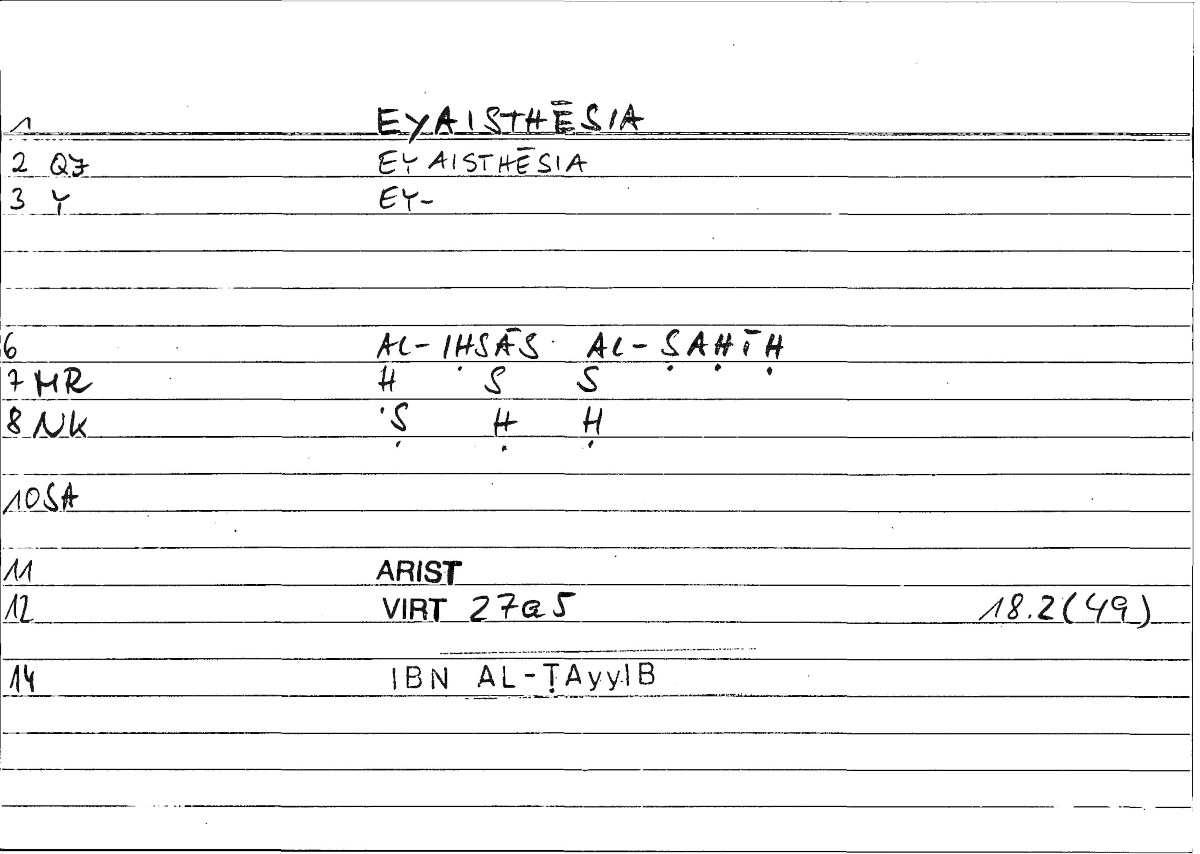 1 EYAISTHĒSIA
2 QJ EYAISTHĒSIA
3 Y EY-
6 AL-IḤSĀS AL-ṢAḤĪḤ
7 MR H S S
8 NK Ṣ Ḥ Ḥ
10 SA
11 ARIST
12 VIRT 27a5 18.2(49)
14 IBN AL-ṬAyyIB